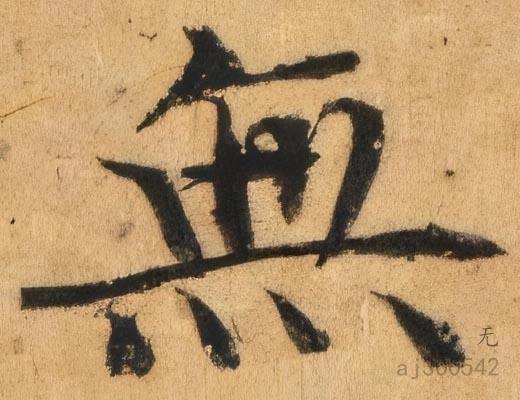 無
无
aj300542